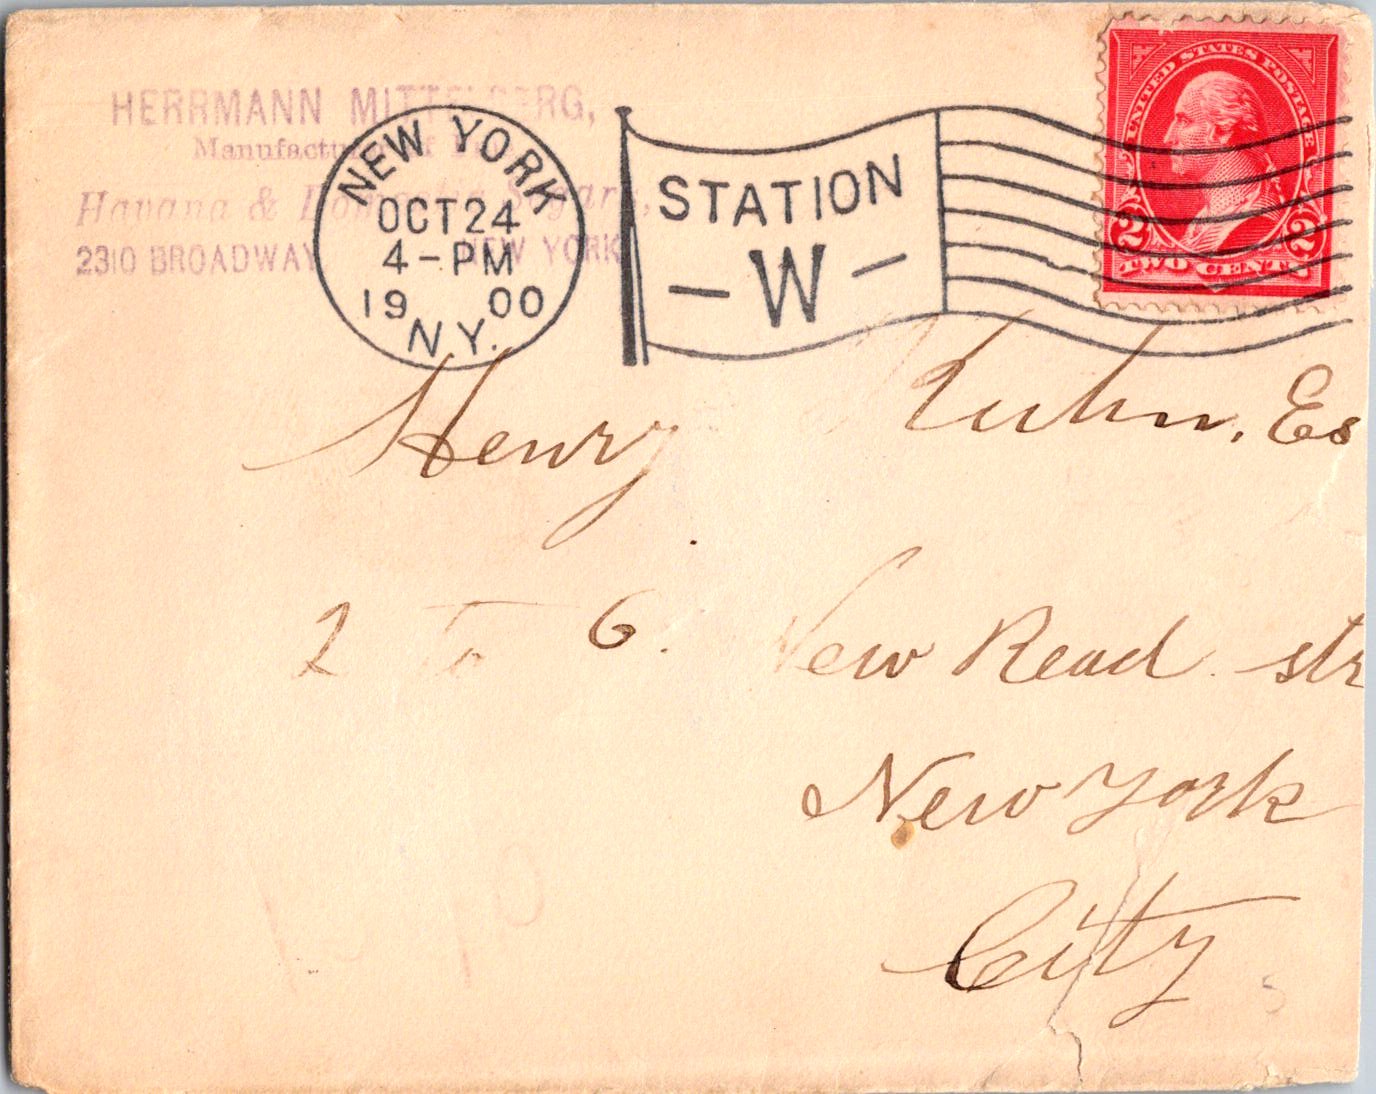 HERRMANN MITTELBERG,
Manufacturer of
Havana & Domestic Segars,
2310 BROADWAY, NEW YORK
NEW YORK
OCT 24
4-PM
1900
N.Y.
STATION
-W-
UNITED STATES POSTAGE
2 2
TWO CENTS
Henry Kuhn, Es
2 To 6. New Read str
New York
City